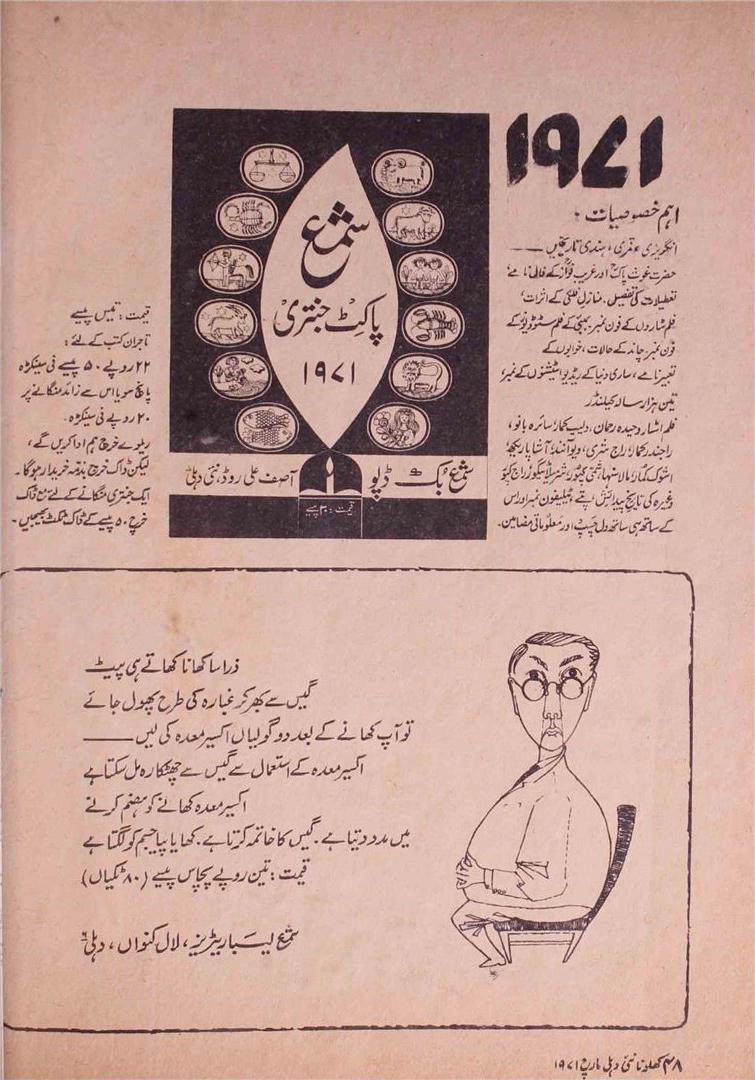 ۱۹۷۱
اہم خصوصیات :
انگریزی، قمری، ہندی تاریخیں ——
حضرت غوث پاک اور غریب نواز کے فالنامے،
تعطیلات کی تفصیل، منازل فلکی کے اثرات،
فلم ستاروں کے فون نمبر، بمبئی کے فلم سٹوڈیوز کے
فون نمبر، چاند کے حالات، خوابوں کے
تعبیرنامے، ساری دنیا کے ریڈیو اسٹیشنوں کے نمبر،
تین ہزار سالہ کیلنڈر
فلم اسٹار وحیدہ رحمان، دلیپ کمار، سائرہ بانو،
راجندر کمار، راج شری، دیوآنند، آشا پاریکھ،
اشوک کمار، مالا سنہا، ششی کپور، راج کپور
وغیرہ کی تاریخ پیدائش، پتے، ٹیلیفون نمبر اور اس
کے ساتھ ہی ساتھ دل چسپ اور معلوماتی مضامین۔
شمع
پاکٹ جنتری
۱۹۷۱
شمع بک ڈپو آصف علی روڈ، نئی دہلی
قیمت : ۳۰ پیسے
قیمت : تیس پیسے
تاجران کتب کے لئے :
۲۲ روپے ۵۰ پیسے فی سینکڑہ
پانچ سو یا اس سے زائد منگانے پر
۲۰ روپے فی سینکڑہ۔
ریلوے خرچ ہم ادا کریں گے،
لیکن ڈاک خرچ بذمہ خریدار ہوگا۔
ایک جنتری منگانے کے لئے مع ڈاک
خرچ ۵۰ پیسے کے ڈاک ٹکٹ بھیجیں۔
ذرا سا کھانا کھاتے ہی پیٹ
گیس سے بھر کر غبارہ کی طرح پھول جائے
تو آپ کھانے کے بعد دو گولیاں اکسیر معدہ کی لیں ——
اکسیر معدہ کے استعمال سے گیس سے چھٹکارہ مل سکتا ہے
اکسیر معدہ کھانے کو ہضم کرنے
میں مدد دیتا ہے۔ گیس کا خاتمہ کرتا ہے۔ کھایا پیا جسم کو لگتا ہے
قیمت : تین روپے پچاس پیسے (۸۰ ٹکیاں)
شمع لیباریٹریز، لال کنواں، دہلی ۶
۴۸ کھلونا نئی دہلی مارچ ۱۹۷۱